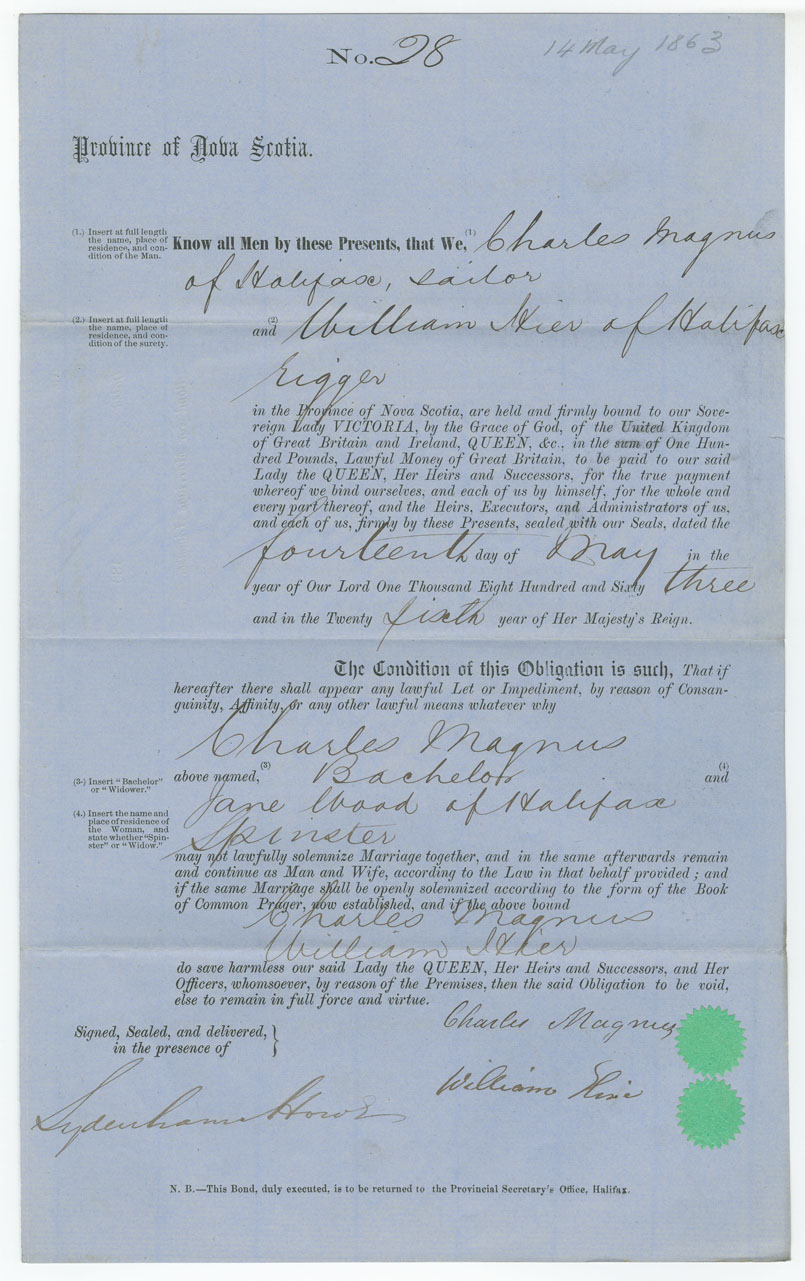 No. 28
14 May 1863
Province of Nova Scotia.
(1.) Insert at full length
the name, place of
residence, and con-
dition of the Man.
Know all Men by these Presents, that We, (1) Charles Magnus
of Halifax, sailor
(2.) Insert at full length
the name, place of
residence, and con-
dition of the surety.
and (2) William Hier of Halifax
rigger
in the Province of Nova Scotia, are held and firmly bound to our Sove-
reign Lady VICTORIA, by the Grace of God, of the United Kingdom
of Great Britain and Ireland, QUEEN, &c., in the sum of One Hun-
dred Pounds, Lawful Money of Great Britain, to be paid to our said
Lady the QUEEN, Her Heirs and Successors, for the true payment
whereof we bind ourselves, and each of us by himself, for the whole and
every part thereof, and the Heirs, Executors, and Administrators of us,
and each of us, firmly by these Presents, sealed with our Seals, dated the
fourteenth day of May in the
year of Our Lord One Thousand Eight Hundred and Sixty three
and in the Twenty sixth year of Her Majesty's Reign.
The Condition of this Obligation is such, That if
hereafter there shall appear any lawful Let or Impediment, by reason of Consan-
guinity, Affinity, or any other lawful means whatever why
Charles Magnus
(3.) Insert "Bachelor"
or "Widower."
above named, (3) Bachelor and (4)
(4.) Insert the name and
place of residence of
the Woman, and
state whether "Spin-
ster" or "Widow."
Jane Wood of Halifax
Spinster
may not lawfully solemnize Marriage together, and in the same afterwards remain
and continue as Man and Wife, according to the Law in that behalf provided; and
if the same Marriage shall be openly solemnized according to the form of the Book
of Common Prayer, now established, and if the above bound
Charles Magnus
William Hier
do save harmless our said Lady the QUEEN, Her Heirs and Successors, and Her
Officers, whomsoever, by reason of the Premises, then the said Obligation to be void,
else to remain in full force and virtue.
Signed, Sealed, and delivered,
in the presence of
Charles Magnus
William
Sydenham Howe
N. B.—This Bond, duly executed, is to be returned to the Provincial Secretary's Office, Halifax.